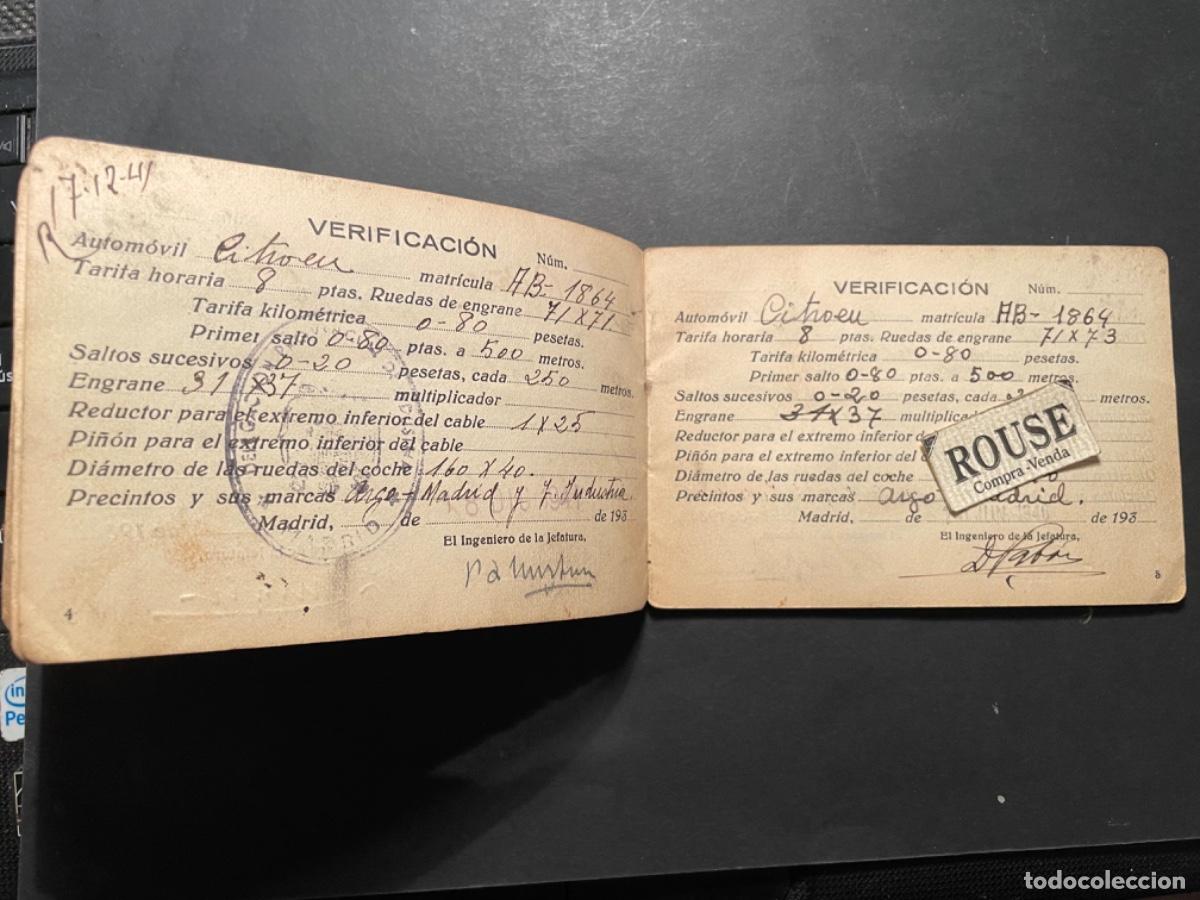 17-12-41
R
VERIFICACIÓN Núm.
Automóvil Citroen matrícula AB-1864
Tarifa horaria 8 ptas. Ruedas de engrane 71 X 71
Tarifa kilométrica 0-80 pesetas.
Primer salto 0-80 ptas. a 500 metros.
Saltos sucesivos 0-20 pesetas, cada 250 metros.
Engrane 31 X 37 multiplicador
Reductor para el extremo inferior del cable 1 X 25
Piñón para el extremo inferior del cable
Diámetro de las ruedas del coche 160 X 40.
Precintos y sus marcas Argo - Madrid y 7. Industria
Madrid, de de 193
El Ingeniero de la Jefatura,
4
MADRID
VERIFICACIÓN Núm.
Automóvil Citroen matrícula AB-1864
Tarifa horaria 8 pesetas. Ruedas de engrane 71 X 73
Tarifa kilométrica 0-80 pesetas.
Primer salto 0-80 ptas. a 500 metros.
Saltos sucesivos 0-20 pesetas, cada metros.
Engrane 31 X 37
Reductor para el extremo inferior
Piñón para el extremo inferior del
Diámetro de las ruedas del coche
Precintos y sus marcas Argo Madrid.
Madrid, de de 193
El Ingeniero de la Jefatura,
ROUSE
Compra-Venda
todocoleccion